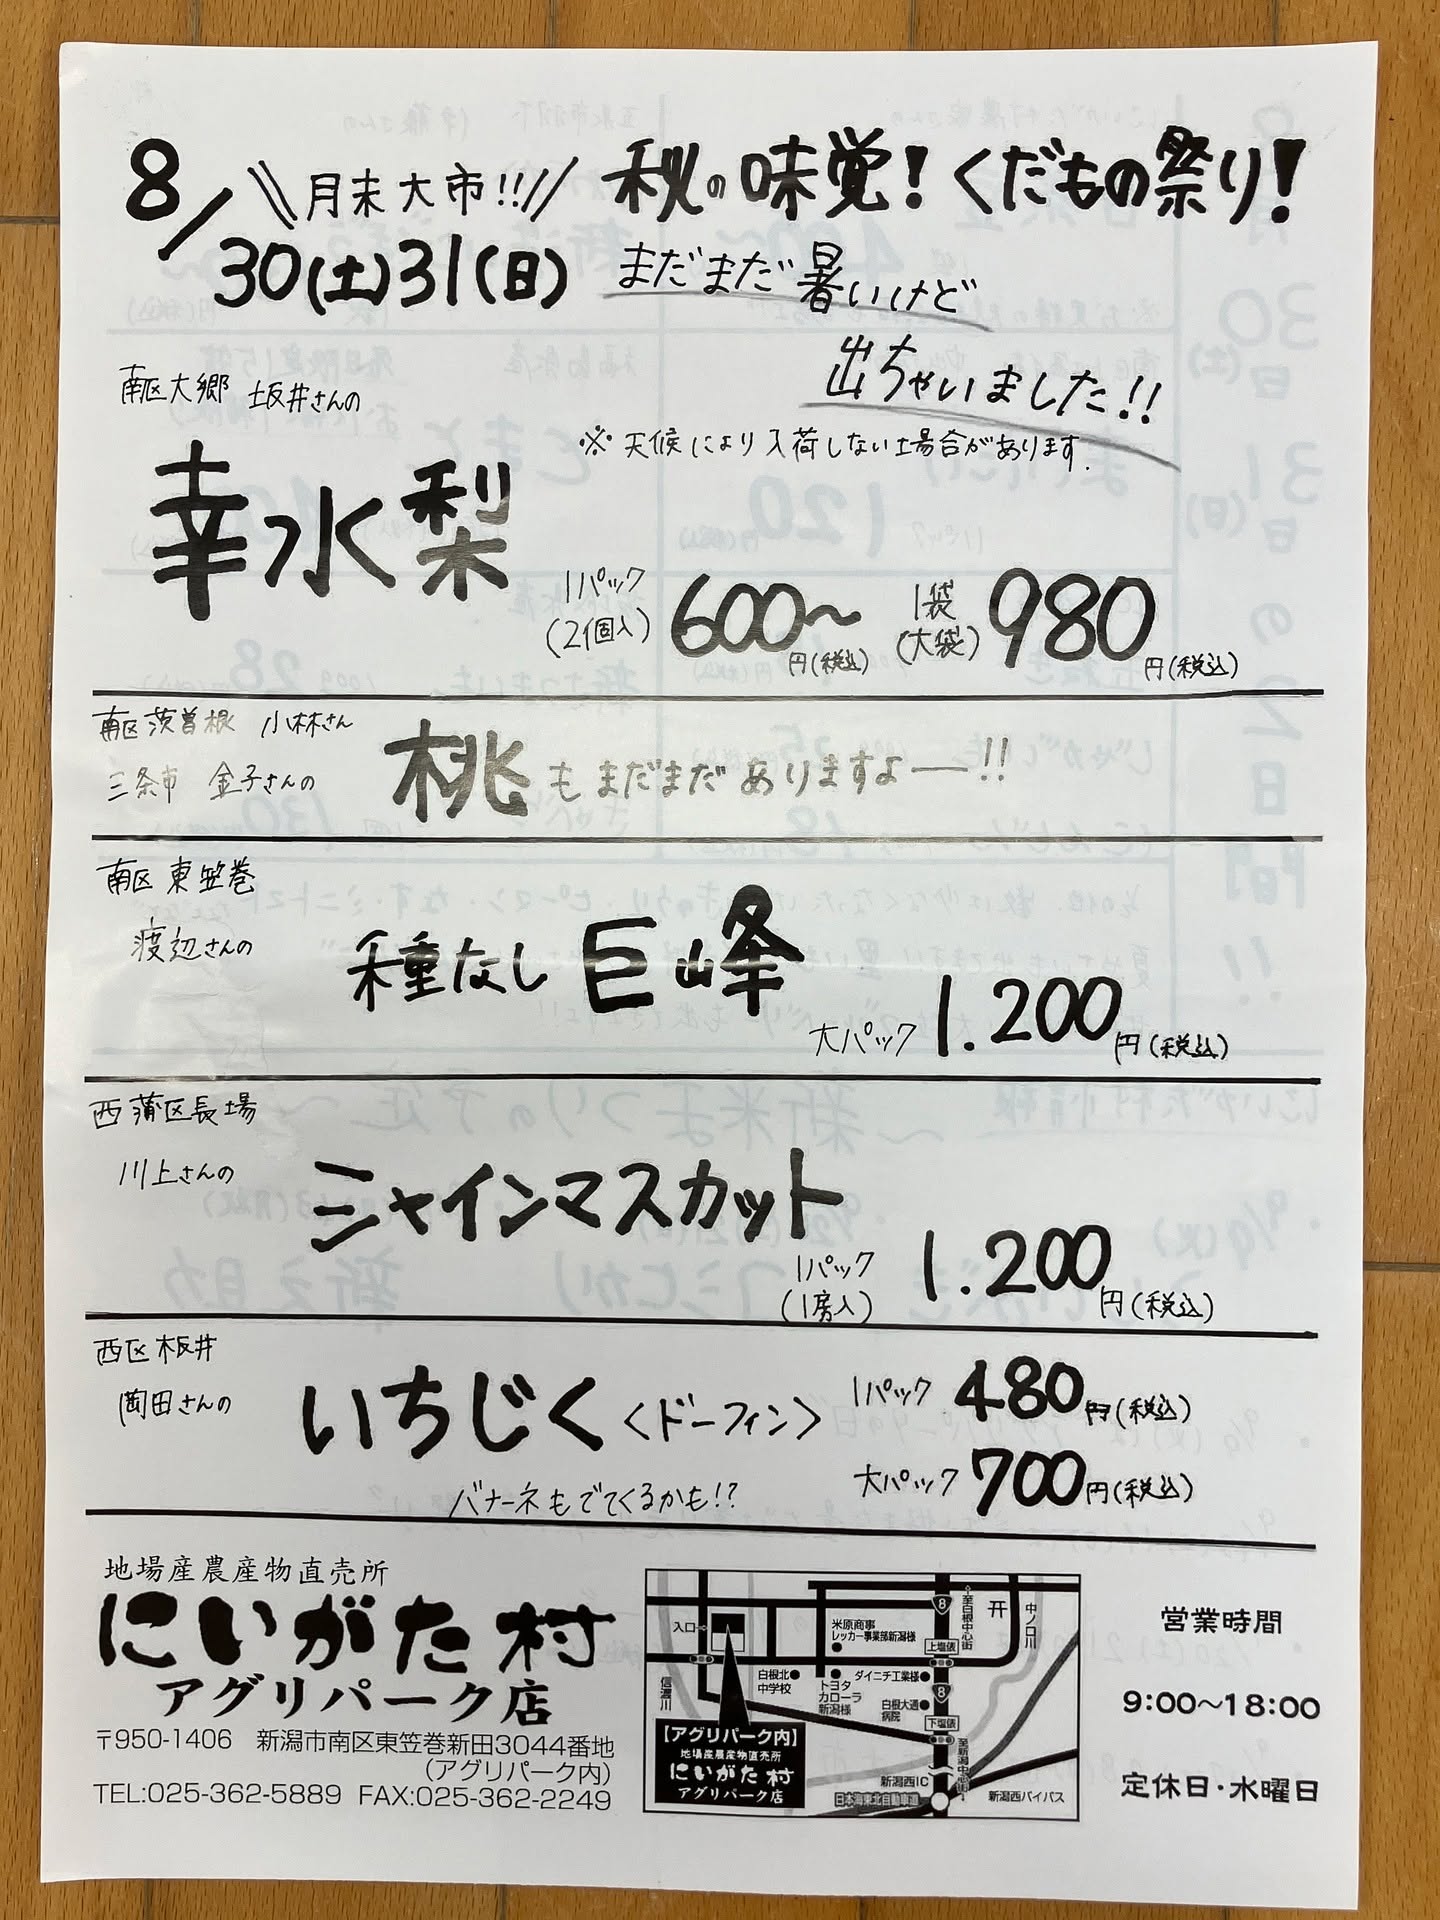 8/30(土)31(日)
\\月末大市!!//
秋の味覚!くだもの祭り!
まだまだ暑いけど
出ちゃいました!!
※天候により入荷しない場合があります.
南区大郷 坂井さんの
幸水梨
1パック(2個入) 600〜円(税込)
1袋(大袋) 980円(税込)
南区茨曽根 小林さん
三条市 金子さんの
桃もまだまだありますよー!!
南区東笠巻
渡辺さんの
種なし巨峰
大パック 1.200円(税込)
西蒲区長場
川上さんの
シャインマスカット
1パック(1房入) 1.200円(税込)
西区板井
岡田さんの
いちじく〈ドーフィン〉
1パック 480円(税込)
大パック 700円(税込)
バナーネもでてくるかも!?
地場産農産物直売所
にいがた村
アグリパーク店
〒950-1406 新潟市南区東笠巻新田3044番地
(アグリパーク内)
TEL:025-362-5889 FAX:025-362-2249
入口
信濃川
白根北中学校
米原商事
レッカー事業部新潟様
トヨタカローラ新潟様
ダイニチ工業様
白根大通病院
8
上塩俵
8
下塩俵
至白根中心街
中ノ口川
至新潟中心街
新潟西IC
日本海東北自動車道
新潟西バイパス
【アグリパーク内】
地場産農産物直売所
にいがた村
アグリパーク店
営業時間
9:00〜18:00
定休日・水曜日